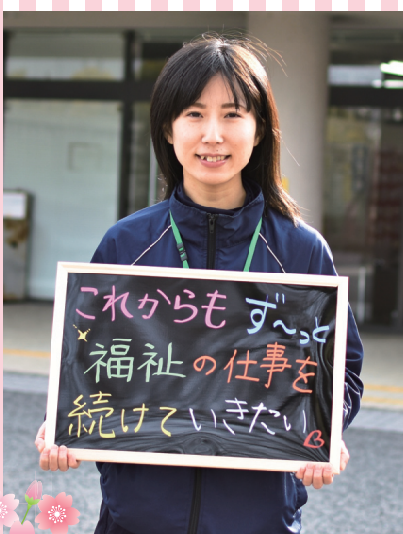 これからも ず〜っと
福祉の仕事を
続けていきたい